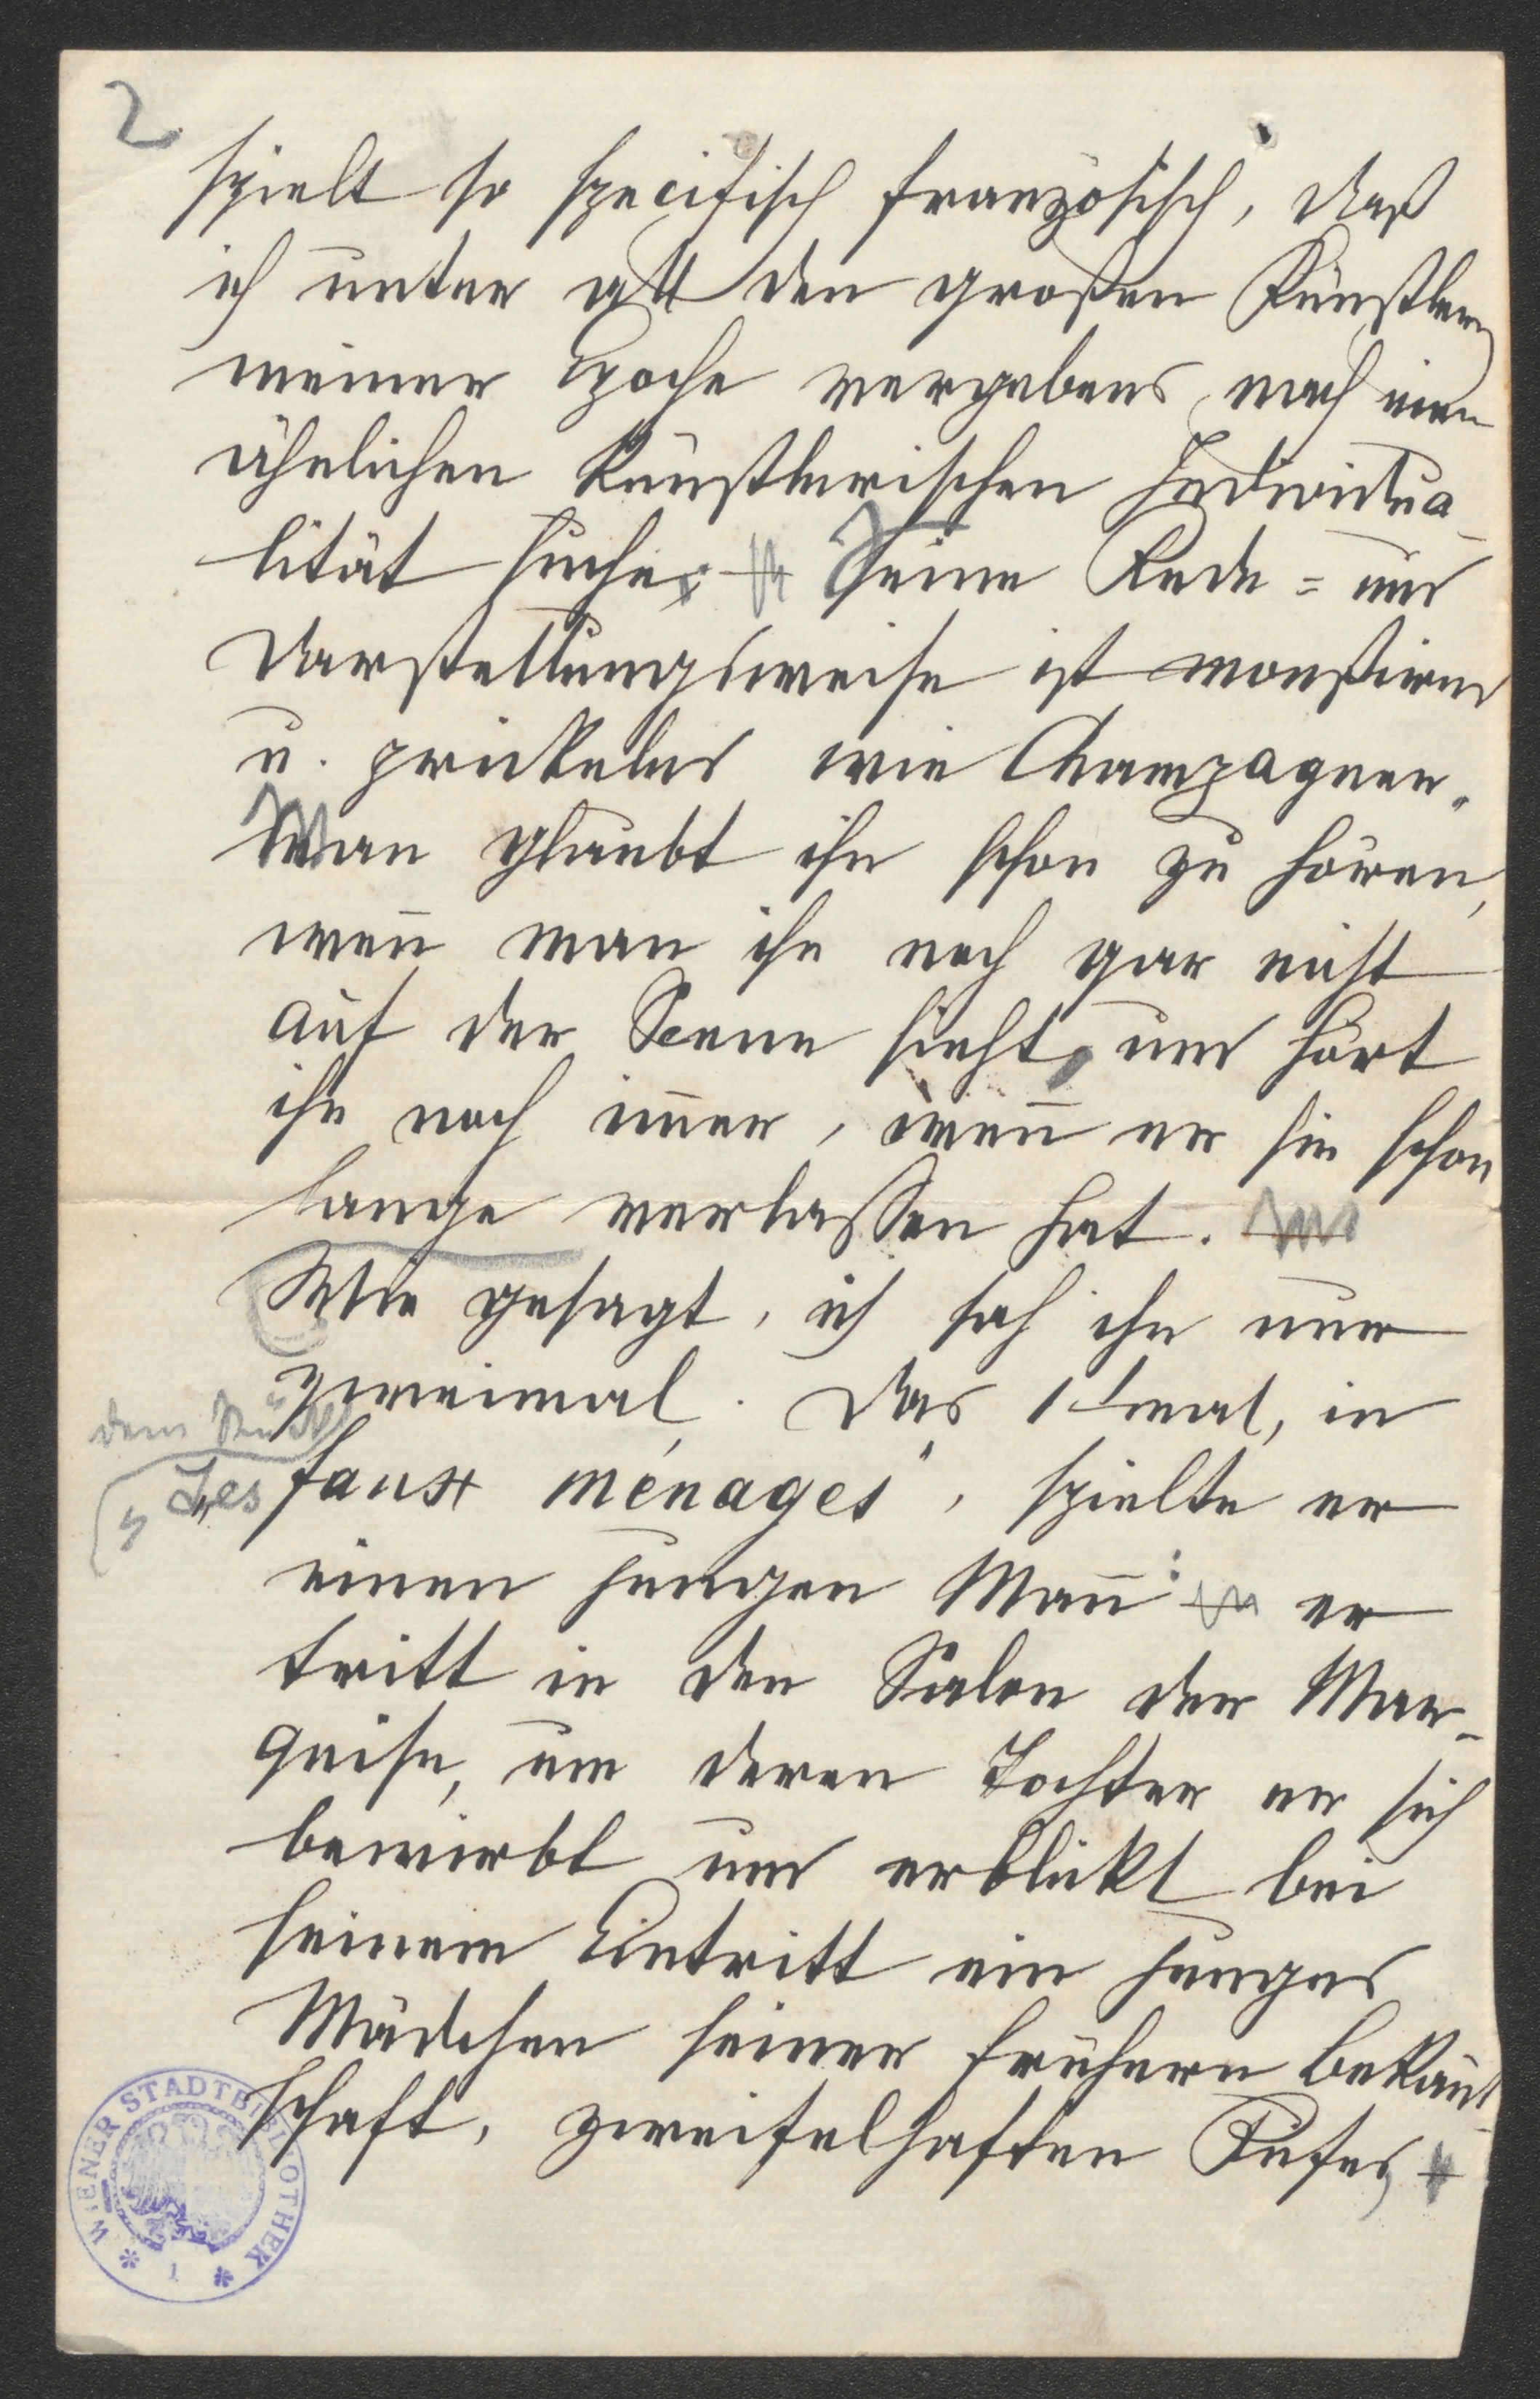 2
spielt so specifisch französisch, daß
ich unter all den großen Künstlern
meiner Epoche vergebens nach einer
ähnlichen künstlerischen Individua-
lität suche. Seine Rede- und
Darstellungsweise ist moußirend
u. prickelnd wie Champagner.
Man glaubt ihn schon zu hören,
weñ man ihn noch gar nicht
auf der Scene sieht, und hört
ihn noch im̃er, weñ er sie schon
lange verlassen hat.
Wie gesagt, ich sah ihn nur
zweimal. Das 1temal, in
dem Stück
„Les faux ménages", spielte er
einen jungen Mañ: er
tritt in den Salon der Mar-
quise, um deren Tochter er sich
bewirbt und erblickt bei
seinem Eintritt ein junges
Mädchen seiner frühern Bekañt
schaft, zweifelhaften Rufes,
WIENER STADTBIBLIOTHEK